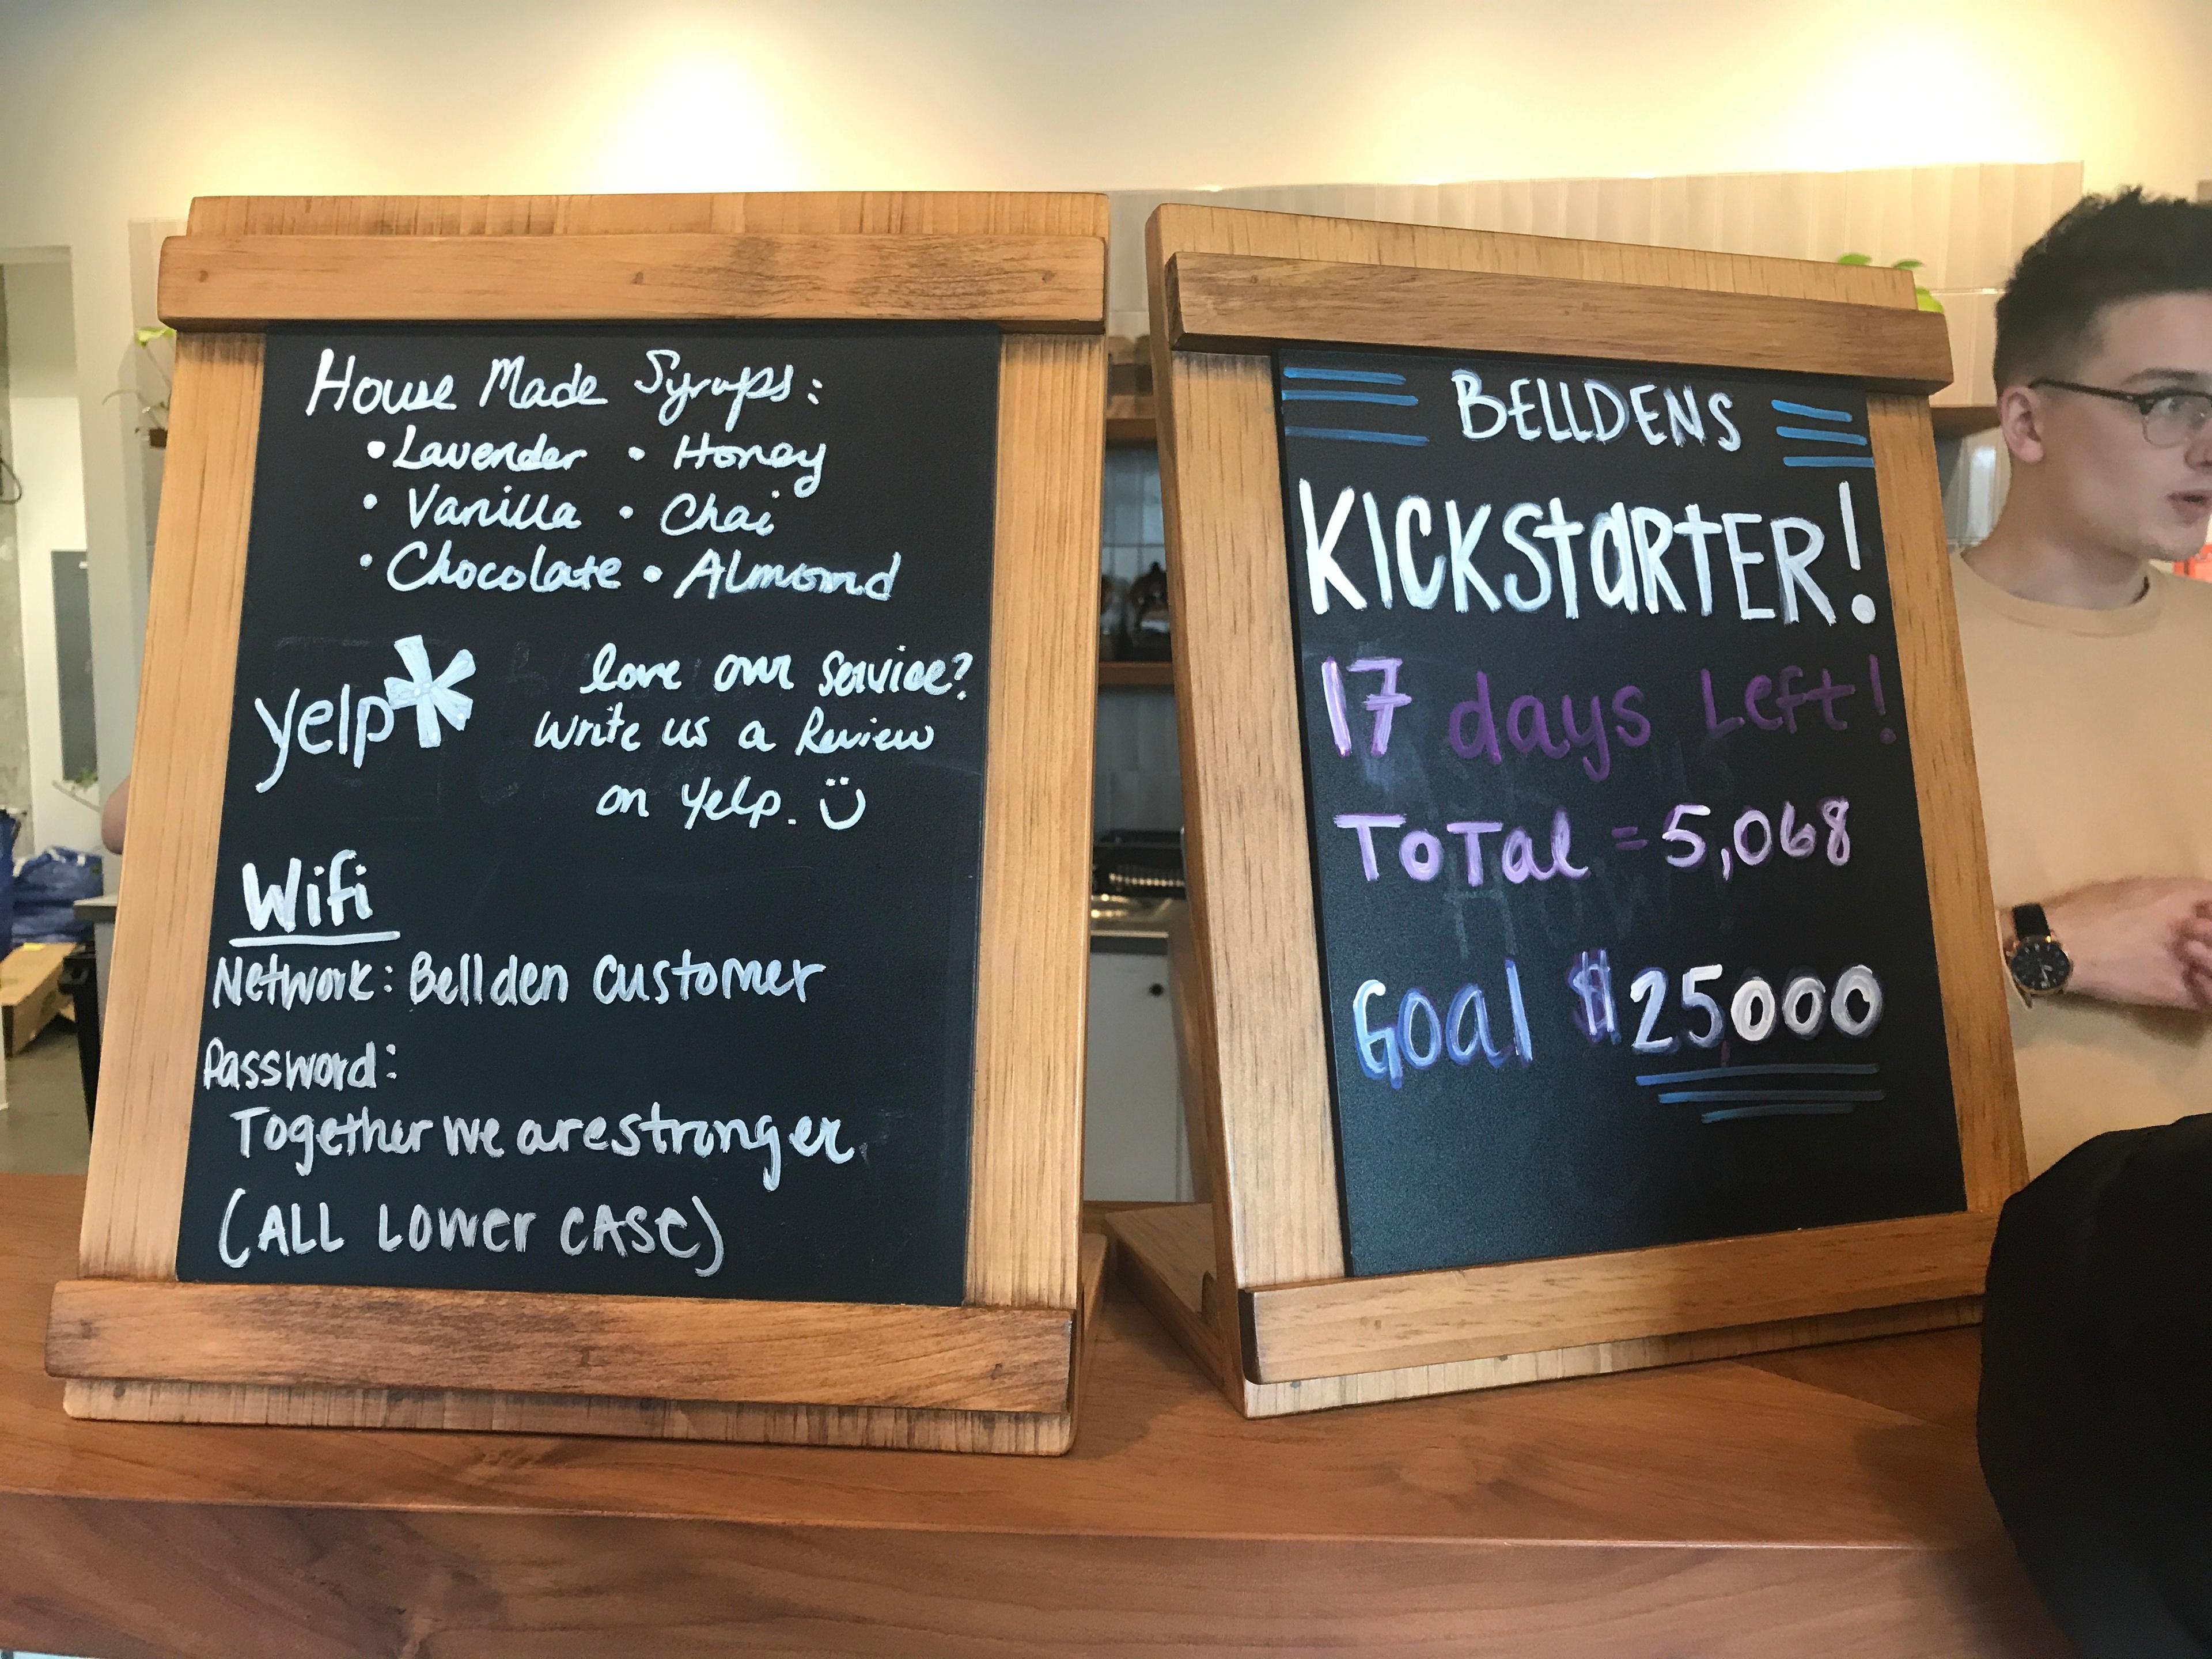 House Made Syrups:
• Lavender • Honey
• Vanilla • Chai
• Chocolate • Almond
yelp
love our service?
Write us a Review
on Yelp.
Wifi
Network: Bellden Customer
Password:
Togetherwearestronger
(ALL LOWER CASE)
BELLDENS
KICKSTARTER!
17 days Left!
ToTal = 5,068
Goal $25,000